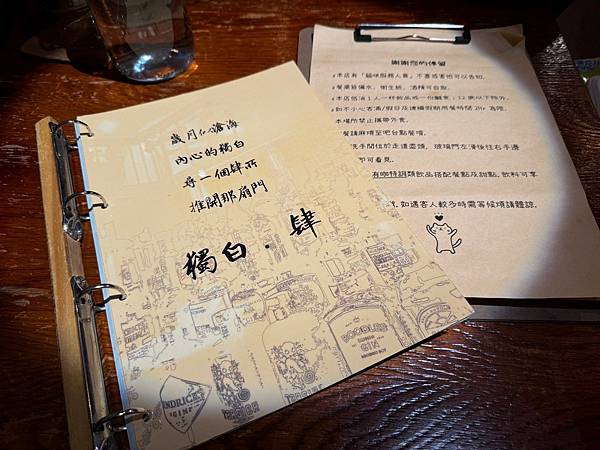 歲月仏滄海
內心的獨白
尋一個肆所
推開那扇門
獨白·肆
HENDRICK'S
GIN
BOODLES
GIN
謝謝您的停留
本店有「貓咪服務人員」不喜或害怕可以告知。
餐桌皆備水、衛生紙、酒精可自取。
本店低消1人一杯飲品或一份鹹食；12歲以下除外。
如不小心客滿/假日及連續假期用餐時間2Hr為限。
本場所禁止攜帶外食。
餐請麻煩至吧台點餐唷。
洗手間位於走道盡頭，玻璃門左滑後往右手邊
即可看見。
有咖特調類飲品搭配餐點及甜點，飲料可享
如遇客人較多時需等候煩請體諒。